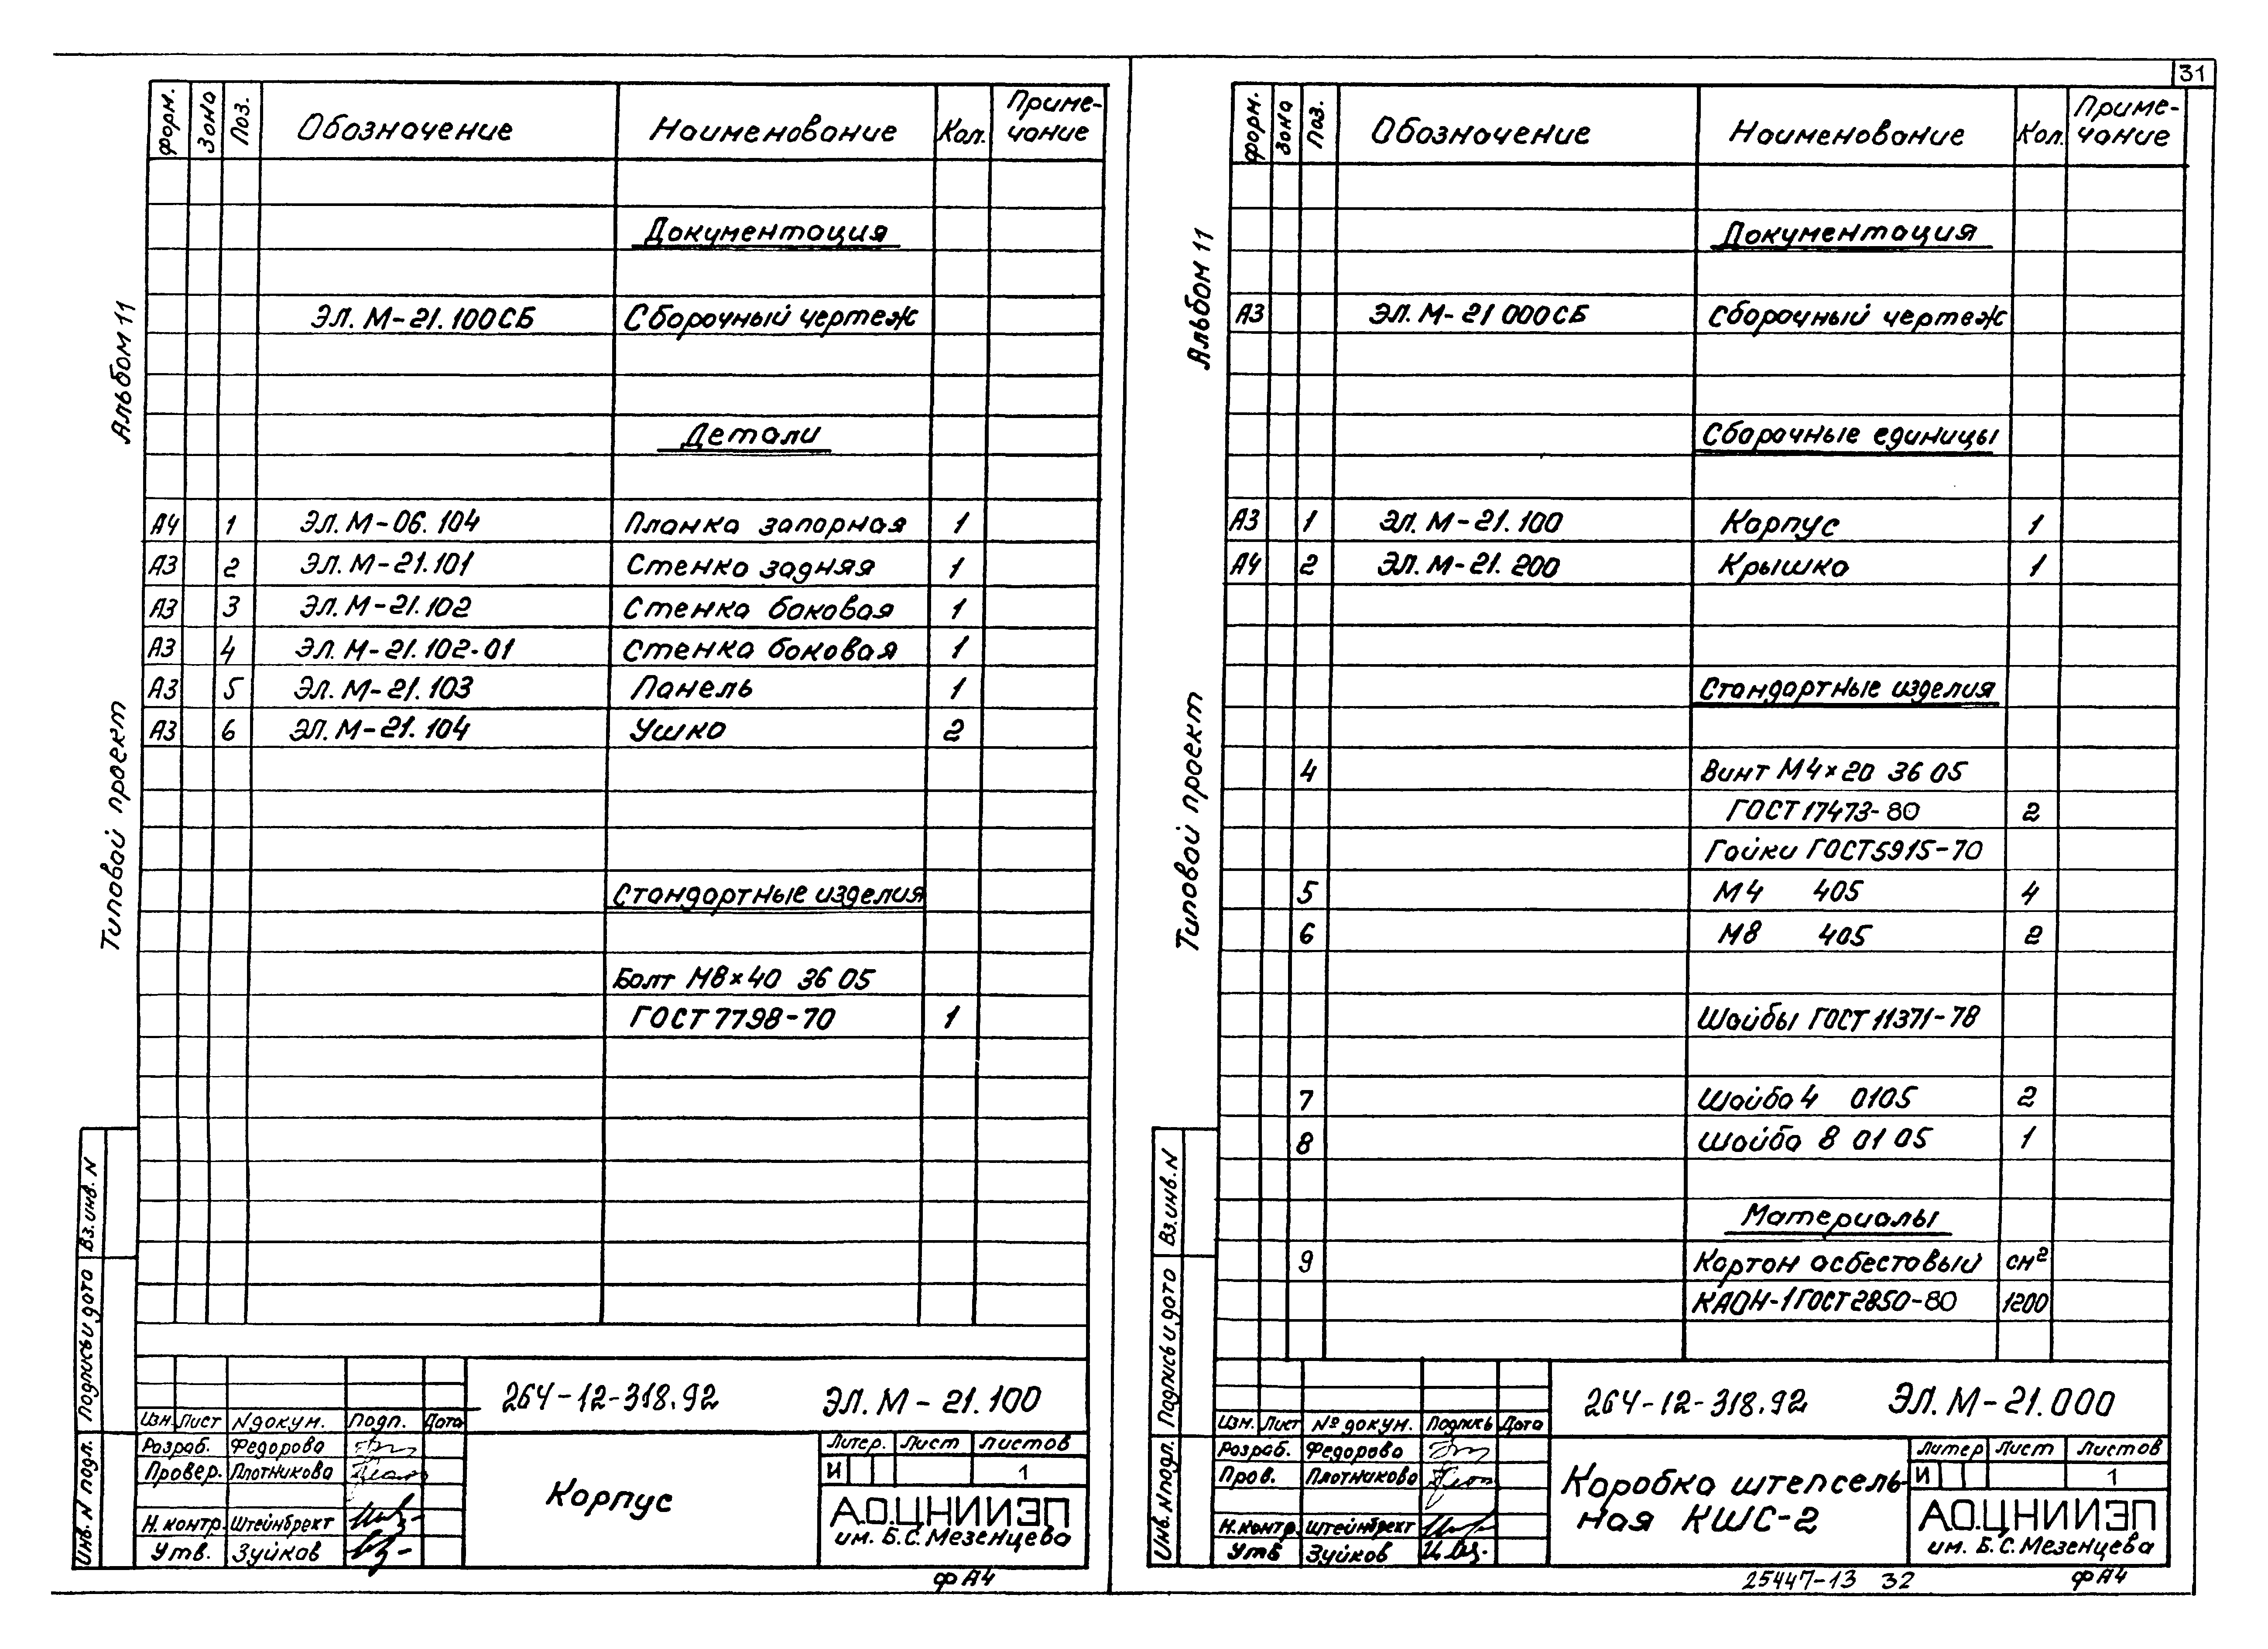 31
Форм. Зона Поз. Обозначение Наименование Кол. Приме-
чание
Документация
ЭЛ.М-21.100СБ Сборочный чертеж
Детали
А4 1 ЭЛ.М-06.104 Планка запорная 1
А3 2 ЭЛ.М-21.101 Стенка задняя 1
А3 3 ЭЛ.М-21.102 Стенка боковая 1
А3 4 ЭЛ.М-21.102-01 Стенка боковая 1
А3 5 ЭЛ.М-21.103 Панель 1
А3 6 ЭЛ.М-21.104 Ушко 2
Стандартные изделия
Болт М8×40 36 05
ГОСТ 7798-70 1
Альбом 11
Типовой проект
Вз.инв.N
Подпись и дата
Инв.N подл.
264-12-318.92 ЭЛ.М-21.100
Изм. Лист N докум. Подп. Дата
Разраб. Федорова
Провер. Плотникова
Н.контр. Штейнбрехт
Утв. Зуйков
Корпус
Литер. Лист Листов
И 1
А.О.ЦНИИЭП
им. Б.С.Мезенцева
ФА4
Форм. Зона Поз. Обозначение Наименование Кол. Приме-
чание
Документация
А3 ЭЛ.М-21 000СБ Сборочный чертеж
Сборочные единицы
А3 1 ЭЛ.М-21.100 Корпус 1
А4 2 ЭЛ.М-21.200 Крышка 1
Стандартные изделия
4 Винт М4×20 36 05
ГОСТ 17473-80 2
Гайки ГОСТ 5915-70
5 М4 405 4
6 М8 405 2
Шайбы ГОСТ 11371-78
7 Шайба 4 0105 2
8 Шайба 8 01 05 1
Материалы
9 Картон асбестовый см²
КАОН-1 ГОСТ 2850-80 1200
Альбом 11
Типовой проект
Вз.инв.N
Подпись и дата
Инв.N подл.
264-12-318.92 ЭЛ.М-21.000
Изм. Лист № докум. Подпись Дата
Разраб. Федорова
Пров. Плотникова
Н.контр. Штейнбрехт
Утв Зуйков
Коробка штепсель-
ная КШС-2
Литер Лист Листов
И 1
А.О.ЦНИИЭП
им. Б.С.Мезенцева
25447-13 32 ФА4